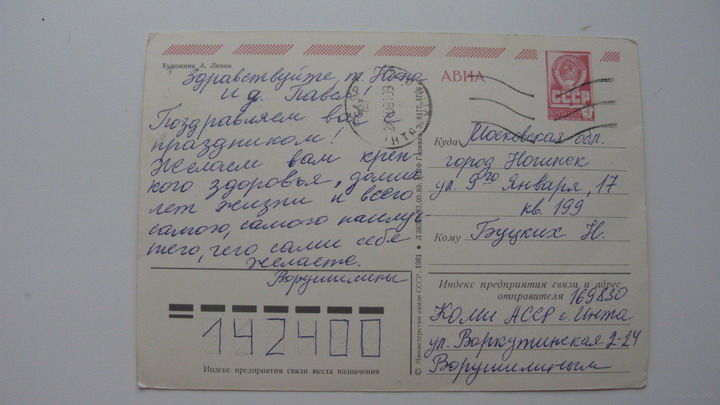 Художник А. Лапин
Здравствуйте, т. Нина
и д. Павел!
Поздравляем вас с
праздником!
Желаем вам креп-
кого здоровья, долгих
лет жизни и всего
самого, самого наилуч-
шего, чего сами себе
желаете.
Ворушилины
142400
Индекс предприятия связи места назначения
© Министерство связи СССР, 1981
АВИА
СССР
Куда Московская обл.
город Ногинск
ул. 9го Января, 17
кв. 199
Кому Буцких Н.
Индекс предприятия связи и адрес
отправителя 169830
Коми АССР г. Инта
ул. Воркутинская 2-24
Ворушилиным